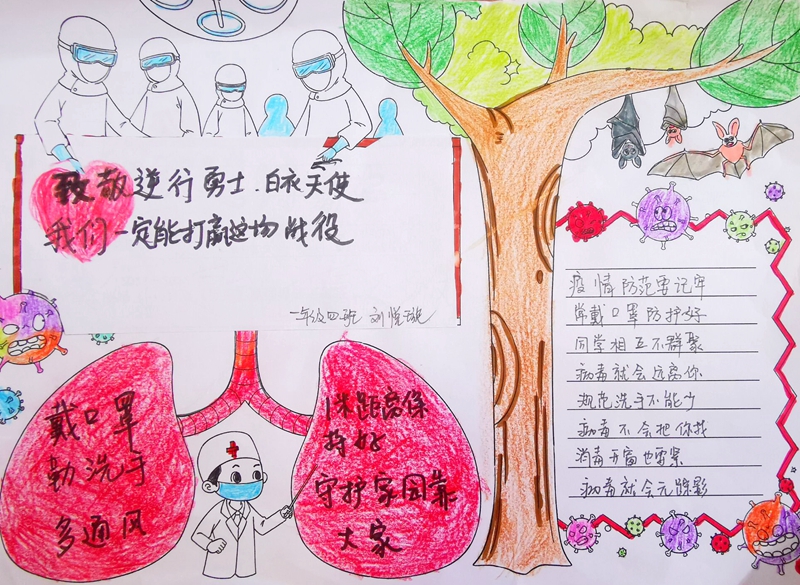 致敬逆行勇士.白衣天使
我们一定能打赢这场战役
一年级四班 刘悦
戴口罩
勤洗手
多通风
1米距离保
持好
守护家园靠
大家
疫情防范要记牢
常戴口罩防护好
同学相互不群聚
病毒就会远离你
规范洗手不能少
病毒不会把你找
消毒开窗也需紧
病毒就会无踪影